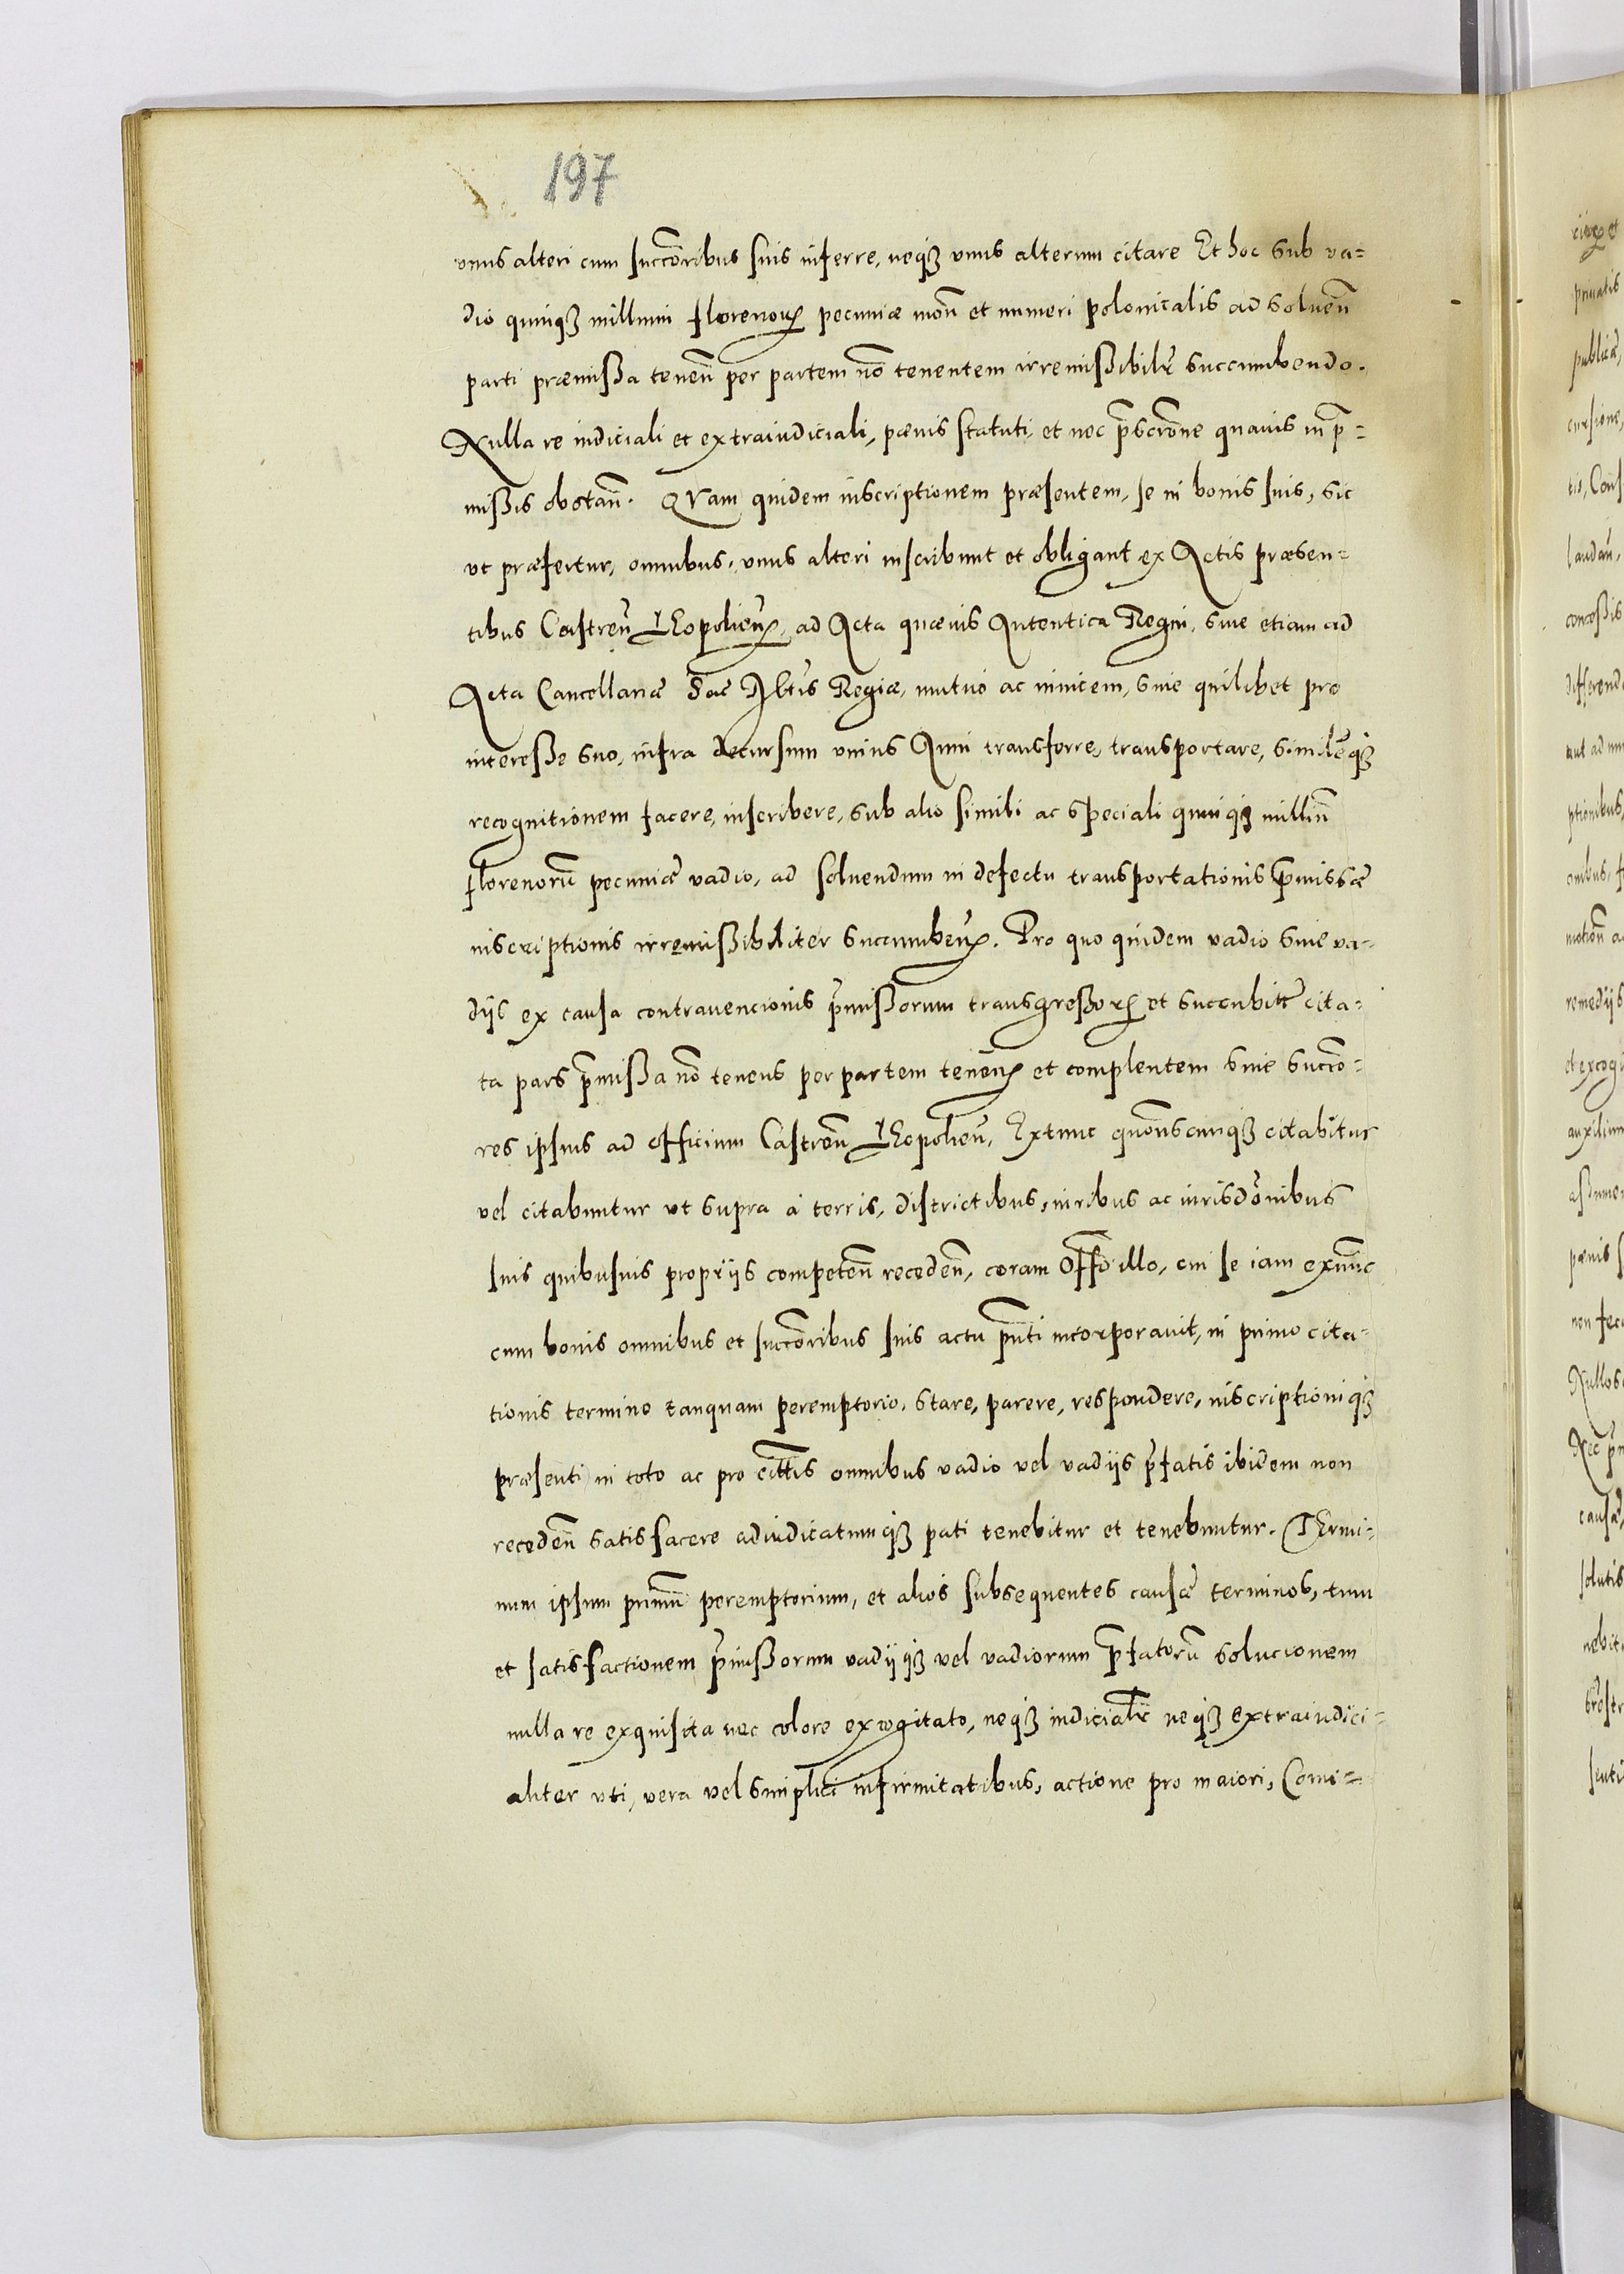 197
vnus alteri cum succõribus suis inferre, neqȝ vnus alterum citare Et hoc sub va=
dio quinqȝ millium florenorꝝ pecuniæ moñ et numeri polonicalis ad soluen̄
parti præmissa tenen̄ per partem nō tenentem irremissibilr̄ succumbendo.
Nulla re iudiciali et extraiudiciali, pœnis statuti, et nec p̄scrōne quauis in p̄=
missis obstan̄. QVam quidem inscriptionem præsentem, se in bonis suis, sic
ut præfertur, omnibus, vnus alteri inscribunt et obligant ex Actis præsen=
tibus Castren̄ LEopolien̄, ad Acta quæuis Autentica Regni, siue etiam ad
Acta Cancellariæ Sac̄ Mtis Regiæ, mutuo ac inuicem, siue quilibet pro
interesse suo, infra decursum vnius Anni transferre, transportare, similēqȝ
recognitionem facere, inscribere, sub alio simili ac speciali quinqȝ milliū
florenorū pecuniæ vadio, ad soluendum in defectu transportationis p̄missæ
inscriptionis irremissibiliter succumbenꝝ. Pro quo quidem vadio siue va=
dijs ex causa contrauencionis p̄missorum transgressorꝝ et succubitꝰ cita=
ta pars p̄missa nō tenens per partem tenenꝝ et complentem siue succro=
res ipsius ad officium Castren̄ LEopolien̄, Extunc quōnscunqȝ citabitur
vel citabuntur ut supra à terris, districtibus, iuribus ac iurisdōnibus
suis quibusuis proprijs competen̄ receden̄, coram Offō illo, cui se iam exnunc
cum bonis omnibus et succōribus suis actu p̄nti incorporauit, in primo cita=
tionis termino tanquam peremptorio, stare, parere, respondere, inscriptioniqȝ
præsenti in toto ac pro cittis omnibus vadio vel vadijs p̄fatis ibidem non
receden̄ satisfacere adiudicatumqȝ pati tenebitur et tenebuntur. TErmi=
num ipsum primū peremptorium, et alios subsequentes causæ terminos, tum
et satisfactionem p̄missorum vadijqȝ vel vadiorum p̄fatorū solucionem
nulla re exquisita nec colore excogitato, neqȝ iudicialr̄ neqȝ extraiudici=
aliter uti, vera vel simplici infirmitatibus, actione pro maiori, Comi=